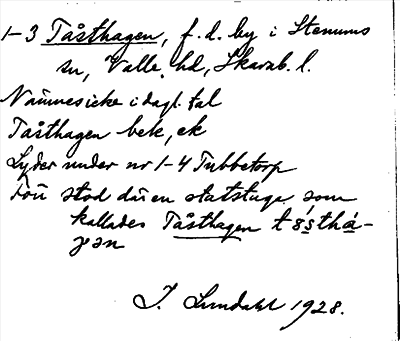 1-3 Tåsthagen, f. d. by i Stenums
sn, Valle hd, Skarab. l.
Nämnes icke i dagl. tal
Tåsthagen bek, ek
Lyder under nr 1-4 Tubbetorp
Förr stod där en statstuga som
kallades Tåsthagen
gən
J. Lundahl 1928.